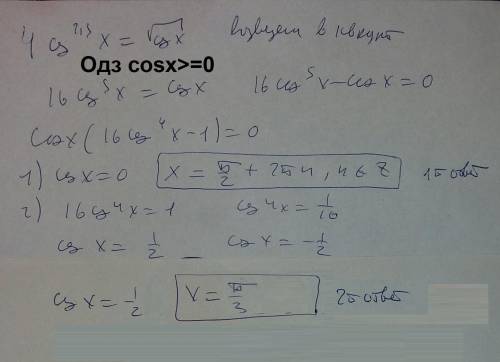 4 cos^2,5 x = √cos x возведем в квадрат
Одз cosx>=0
16 cos^5 x = cos x 16 cos^5 x - cos x = 0
Cos x (16 cos^4 x - 1) = 0
1) cos x = 0 X = π/2 + 2πn, n ∈ Z 1й ответ
2) 16 cos^4 x = 1 cos^4 x = 1/16
cos x = 1/2 cos x = -1/2
cos x = 1/2 X = π/3 2й ответ